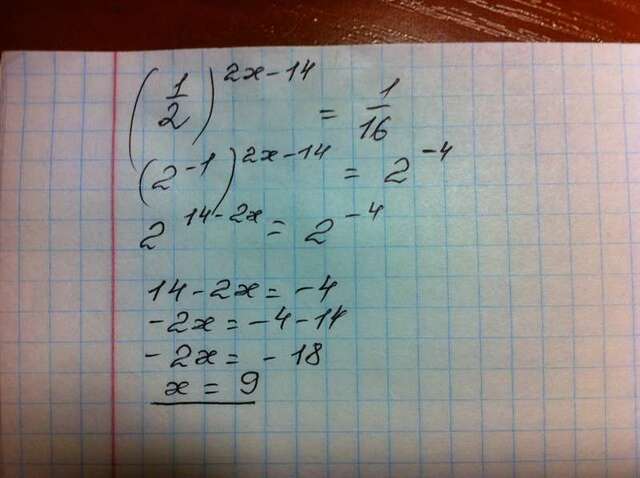 (1/2)^(2x-14) = 1/16
(2^-1)^(2x-14) = 2^-4
2^(14-2x) = 2^-4
14-2x = -4
-2x = -4-14
-2x = -18
x = 9